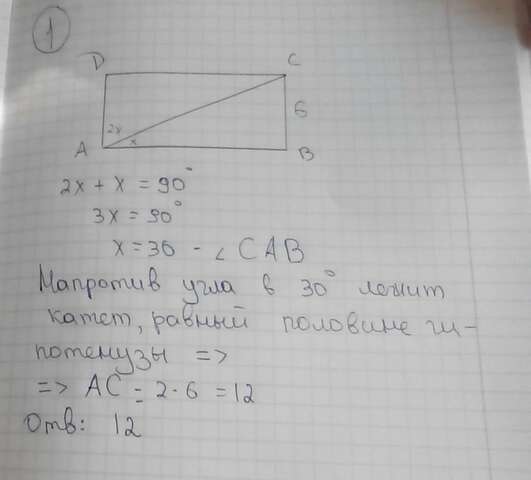 1
D C
2x 6
A x B
2x + x = 90°
3x = 90°
x = 30 - ∠ CAB
Напротив угла в 30° лежит
катет, равный половине ги-
потенузы =>
=> AC = 2·6 = 12
Отв: 12